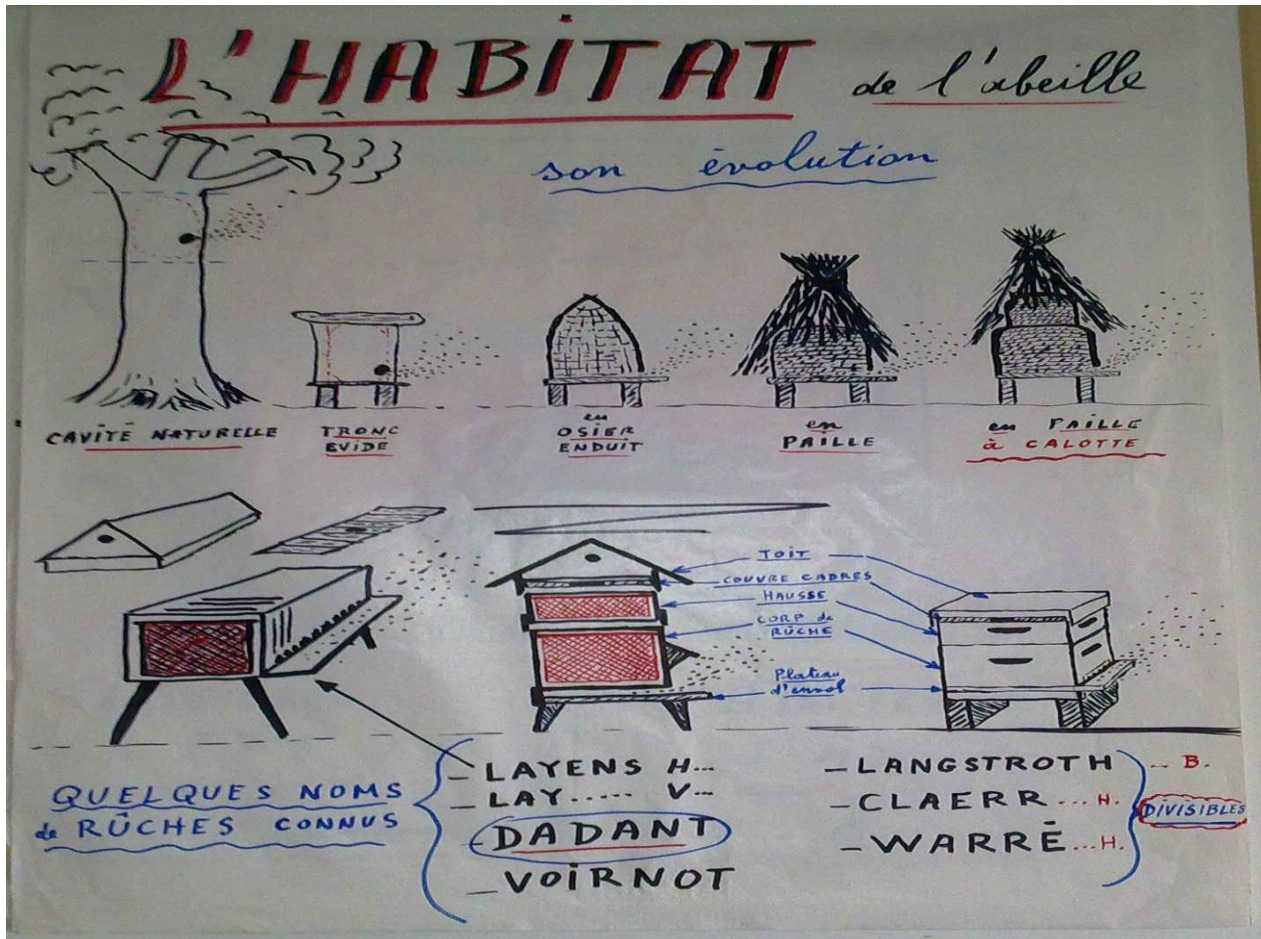 L'HABITAT de l'abeille
son évolution
CAVITÉ NATURELLE
TRONC
EVIDE
en
OSIER
ENDUIT
en
PAILLE
en PAILLE
à CALOTTE
TOIT
COUVRE CADRES
HAUSSE
CORP de
RÛCHE
Plateau
d'envol
QUELQUES NOMS
de RÛCHES CONNUS
- LAYENS H...
- LAY..... V...
- DADANT
- VOIRNOT
- LANGSTROTH -- B.
- CLAERR ... H.
- WARRÉ ... H.
DIVISIBLES